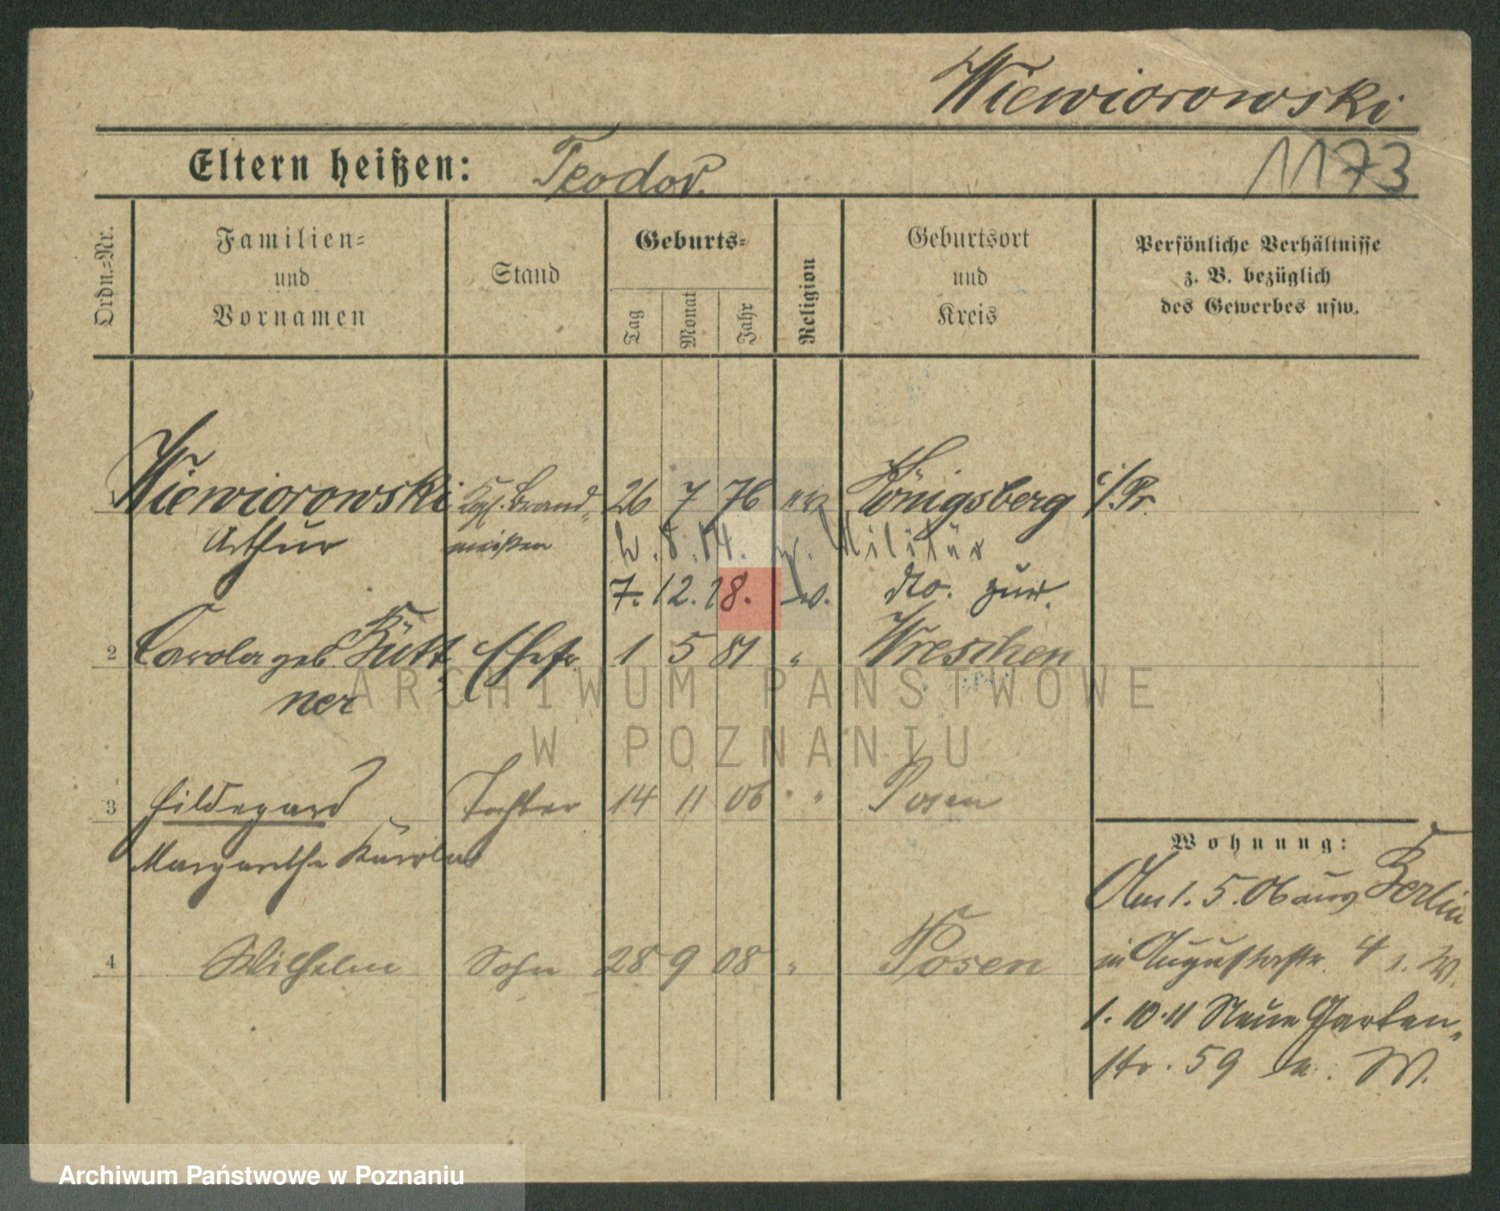 Wiewiorowski
Eltern heißen: Teodor.
1173
Ordn.=Nr.
Familien=
und
Vornamen
Stand
Geburts=
Tag
Monat
Jahr
Religion
Geburtsort
und
Kreis
Persönliche Verhältnisse
z. B. bezüglich
des Gewerbes usw.
1 Wiewiorowski Kgl. Brand= 26 7 76 Königsberg i/Pr.
Arthur meister
8.14. z. Militär
7.12.18. do. zur.
2 Carola geb. Kütt= Ehefr. 1 5 81 " Wreschen
ner
3 Hildegard Tochter 14 11 06 " " Posen
Margarethe Karola
4 Wilhelm Sohn 28 9 08 " Posen
Wohnung:
Am 1. 5. 06 aus Berlin
in Augustastr. 4 z. W.
1. 10. 11 Neue Garten=
str. 59 W.
ARCHIWUM PAŃSTWOWE
W POZNANIU
Archiwum Państwowe w Poznaniu